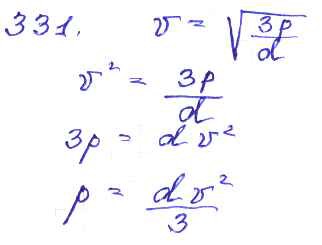 331. v = √(3p/d)
v² = 3p/d
3p = dv²
p = dv²/3